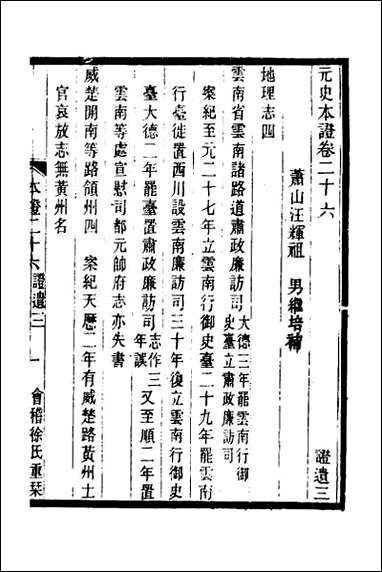 元史本證卷二十六
證遺三
蕭山汪輝祖 男繼培補
地理志四
雲南省雲南諸路道肅政廉訪司大德三年罷雲南行御史臺立肅政廉訪司
案紀至元二十七年立雲南行御史臺二十九年罷雲南
行臺徙置西川設雲南廉訪司三十年復立雲南行御史
臺大德二年罷臺置肅政廉訪司志作三年誤又至順二年置
雲南等處宣慰司都元帥府志亦失書
威楚開南等路領州四 案紀天曆二年有威楚路黃州土
官哀放志無黃州名
本證二十六 證遺三 一 會稽徐氏重栞